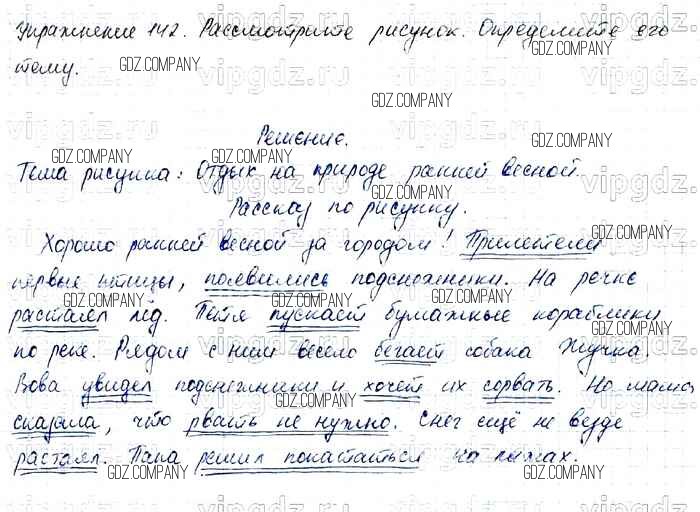 Упражнение 142. Рассмотрите рисунок. Определите его
тему.
Решение.
Тема рисунка: Отдых на природе ранней весной.
Рассказ по рисунку.
Хорошо ранней весной за городом! Прилетели
первые птицы, появились подснежники. На речке
растаял лёд. Петя пускает бумажные кораблики
по реке. Рядом с ним весело бегает собака Жучка.
Вова увидел подснежники и хочет их сорвать. Но мама
сказала, что рвать не нужно. Снег ещё не везде
растаял. Папа решил покататься на лыжах.